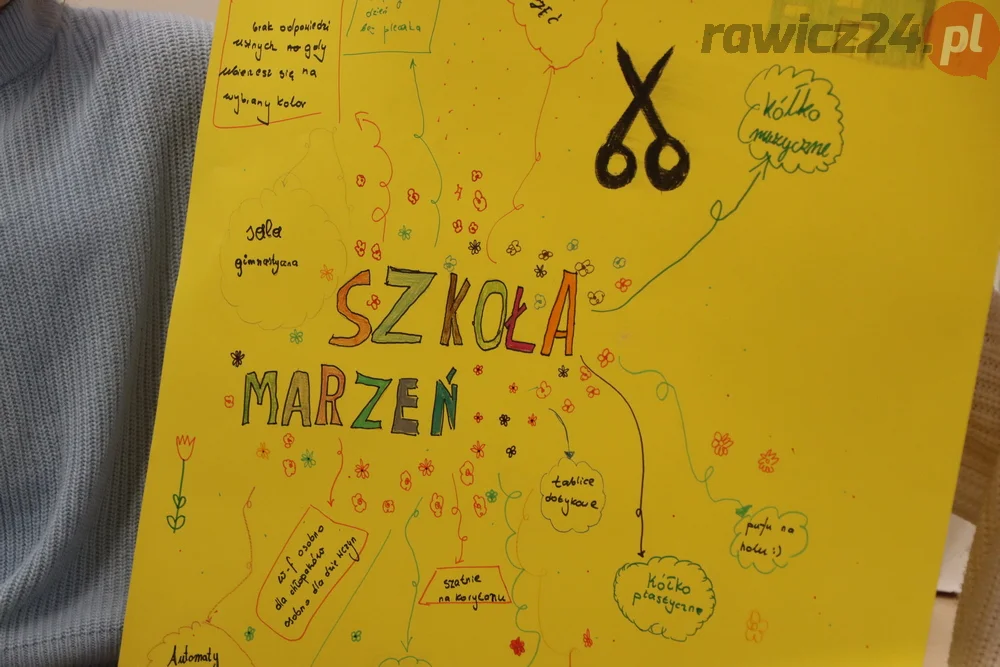 rawicz24.pl
brak odpowiedzi
ustnych no gdy
ubierzesz się na
wybrany kolor
dzień
bez plecaka
kółko
muzyczne
sala
gimnastyczna
SZKOŁA
MARZEŃ
tablice
dotykowe
pufy na
holu :)
w-f osobno
dla chłopaków
osobno dla dziewczyn
szatnie
na korytarzu
kółko
plastyczne
Automaty